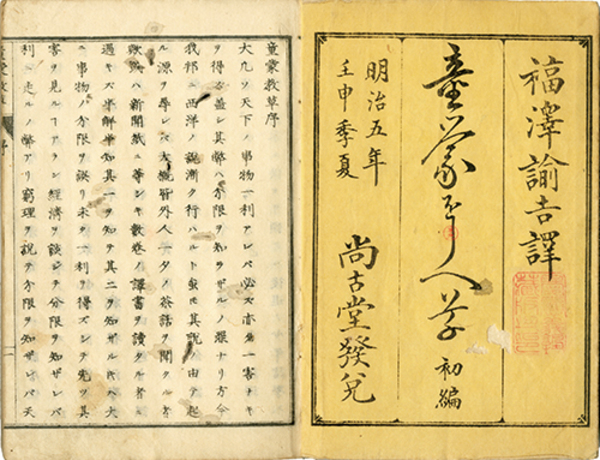 福澤諭吉譯
童蒙をしへ草 初編
明治五年
壬申季夏
尚古堂發兌
童蒙教草序
大凡ソ天下ノ事物一利アレバ必ズ亦一害ナキ
ヲ得ズ蓋シ其弊ハ分限ヲ知ラザルノ罪ナリ方今
我邦ニ西洋ノ説漸ク行ハルト雖モ其説ノ由テ起
ル源ヲ尋レバ大概皆外人一夕ノ茶話ヲ聞タル者
歟或ハ新聞紙ニ等シキ數巻ノ譯書ヲ讀タル者ニ
過ギズ半解半知其一ヲ知テ其二ヲ知ザル 大
ニ事物ノ分限ヲ誤リ未ダ一利ヲ得ズシテ先ヅ其
害ヲ見ルヿアラン經濟ヲ談ジテ分限ヲ知ザレバ
利ニ走ルノ弊アリ窮理ヲ説テ分限ヲ知ザレバ天